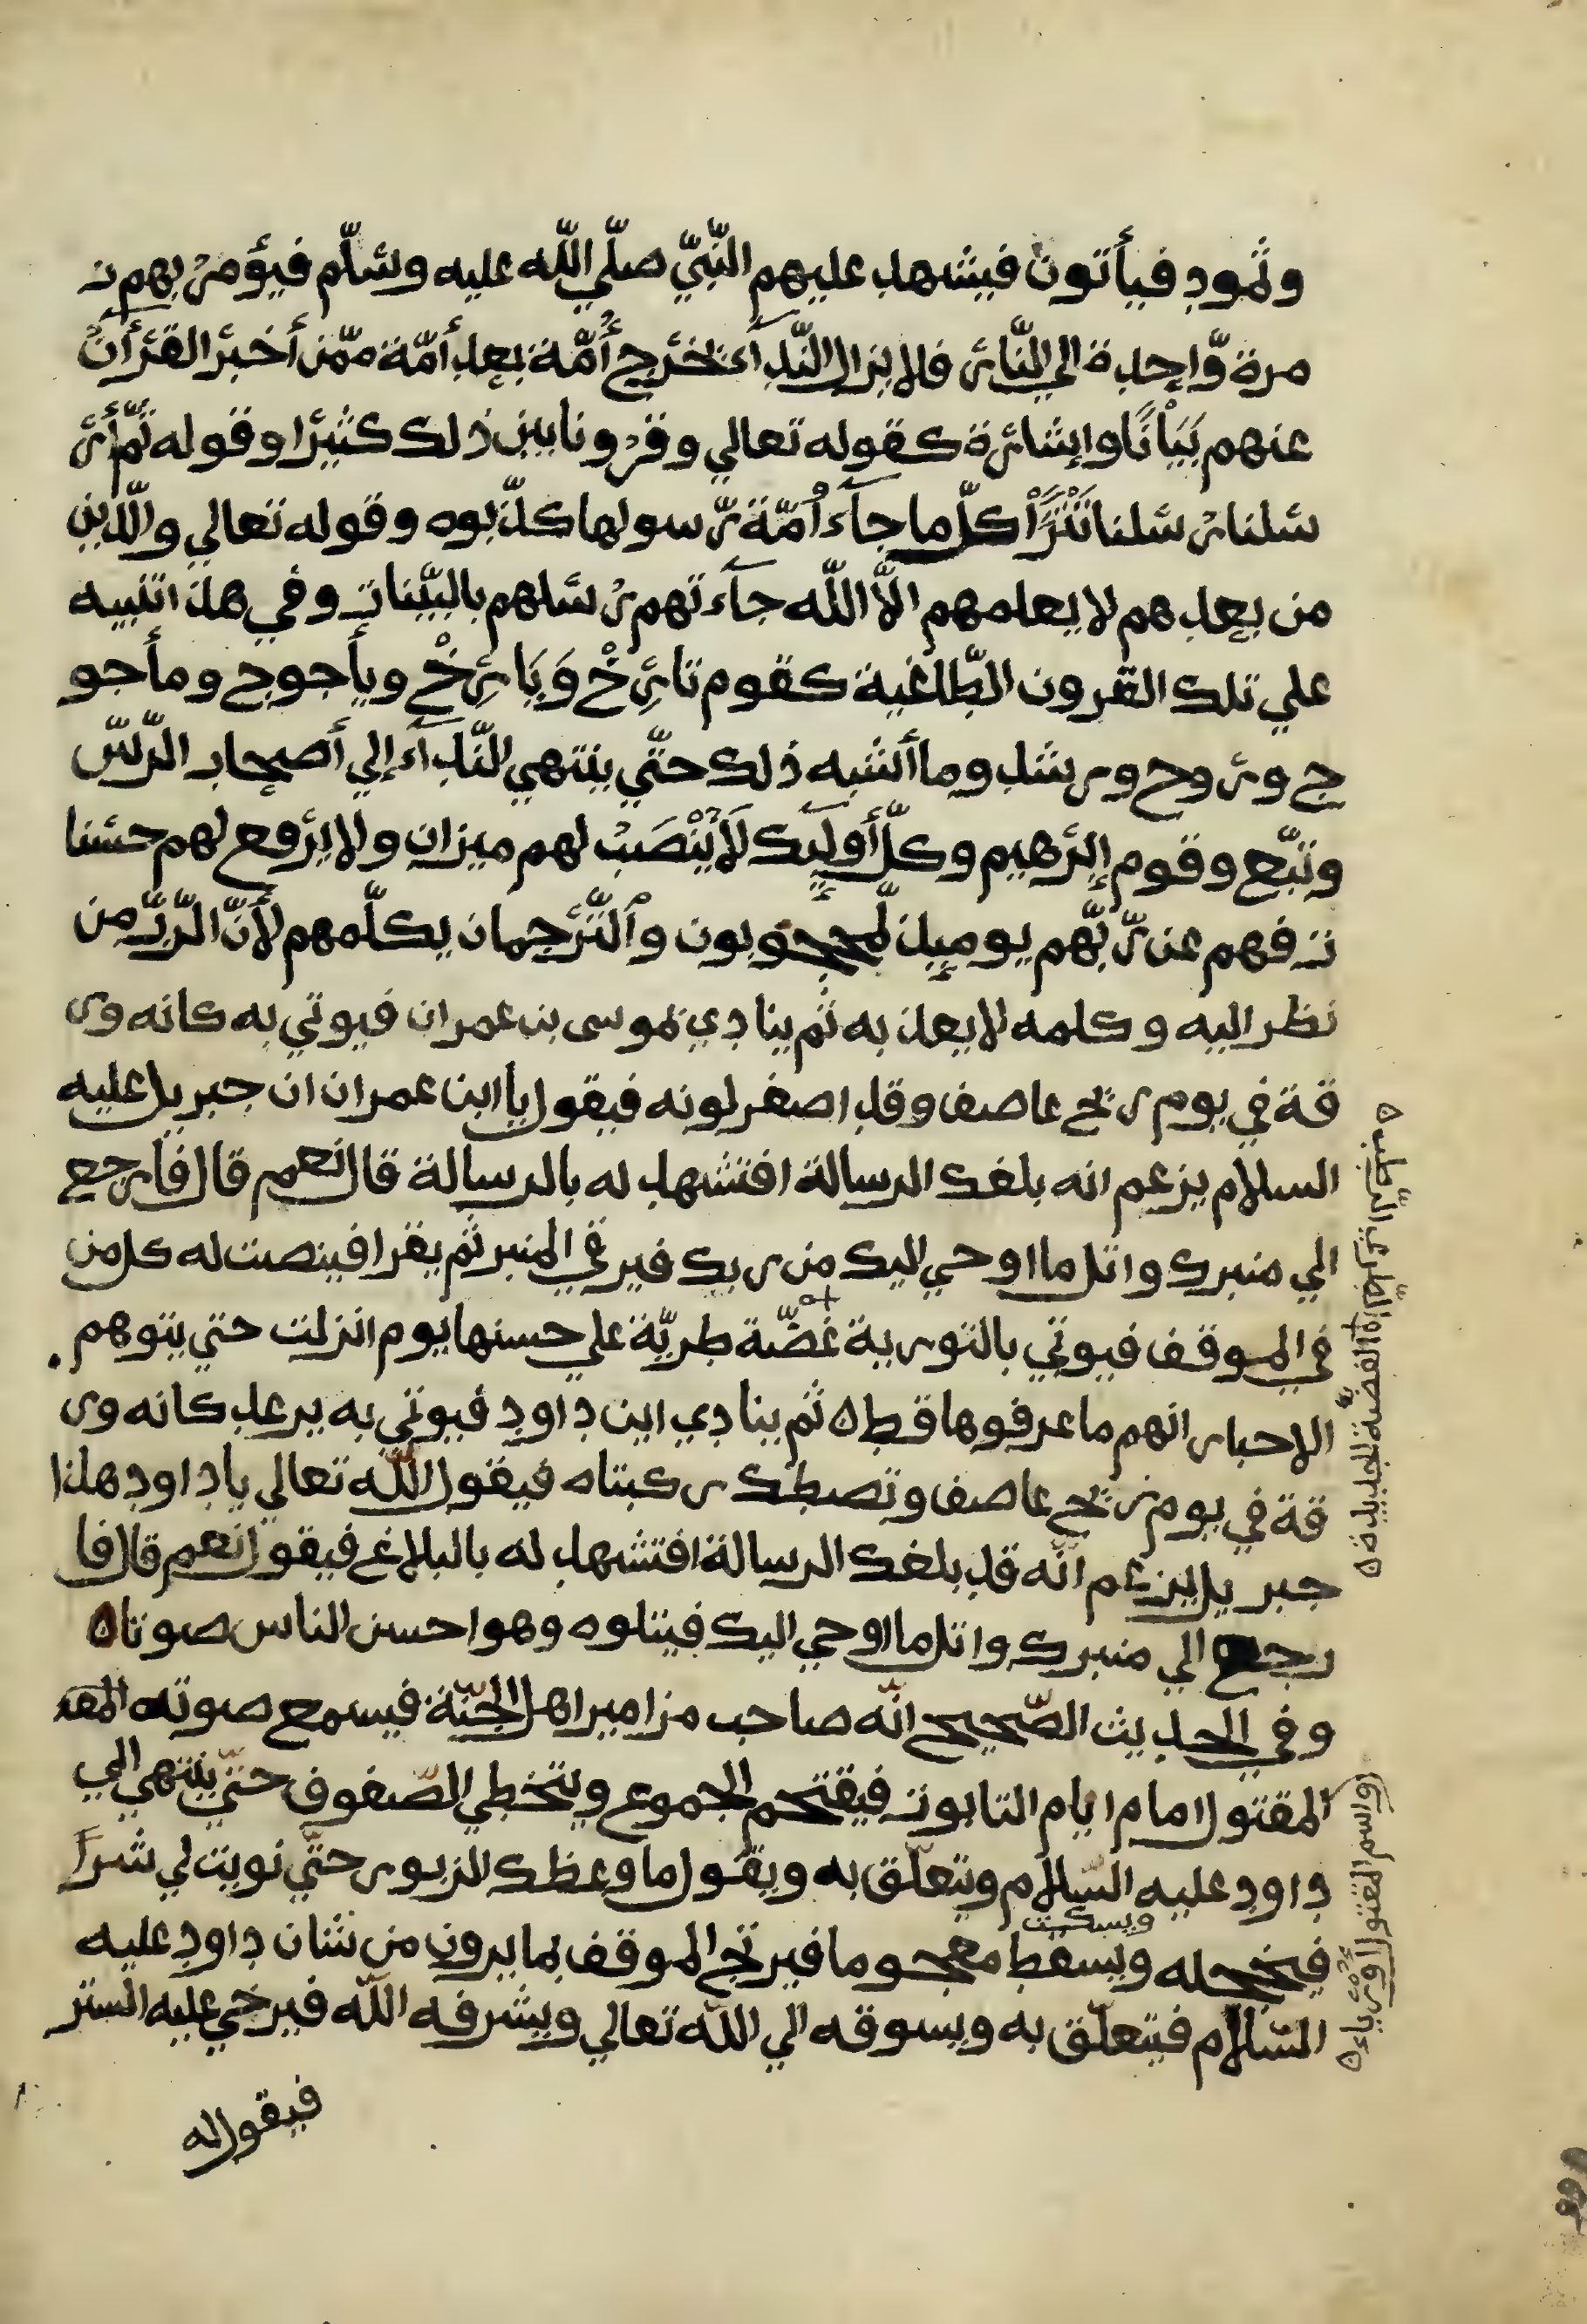 وثمود فيأتون فيشهد عليهم النّبيّ صلّي اللّه عليه وسلّم فيؤمر بهم ز
مرة وّاحدة الي النّار فلا يزال النّدآء تخرج أمّة بعد أمّة ممّن أخبر القرأن
عنهم بَيَانًا وإشارة كقوله تعالي وقرونا بين ذلك كثيرا وقوله ثمّ أر
سلنا رسلنا تَتْرَا كلّ ما جآء أمّة رّسولها كذّبوه وقوله تعالي والّذين
من بعدهم لا يعلمهم الاّ اللّه جآءتهم رسلهم بالبيّنات وفي هذا تنبيه
علي تلك القرون الطّاغية كقوم تارخْ وَبَارخْ ويأجوج ومأجو
ج وروح ورشد وما أشبه ذلك حتّي ينتهي النّدآء إلي أصحاب الرّسّ
وتبّع وقوم إبرهيم وكلّ أولٓئك لَا يُنْصَبُ لهم ميزان ولا يرفع لهم حسنا
ت فهم عن رّبّهم يوميذ لّمحجوبون والتّرجمان يكلّمهم لأنّ الرّبّ من
نظر اليه وكلمه لا يعذبه ثم ينادي بموسى بن عمران فيوتي به كانه ور
قة في يوم ريح عاصف وقد اصفر لونه فيقول يا ابن عمران ان جبريل عليه
السلام يزعم انه بلغك الرسالة افتشهد له بالرسالة قال نعم قال فارجع
الي منبرك واتل ما اوحي اليك من ربك فيرقي المنبر ثم يقرا فينصت له كل من
في الموقف فيوتي بالتورية غضّة طريّة علي حسنها يوم انزلت حتي يتوهم
الاحبار انهم ما عرفوها قط ه ثم ينادي اين داود فيوتي به يرعد كانه ور
قة في يوم ريح عاصف وتصطك ركبتاه فيقول اللّه تعالي ياداود هذا
جبريل يزعم انّه قد بلغك الرسالة افتشهد له بالبلاغ فيقول نعم قال فا
رجع الي منبرك واتل ما اوحي اليك فيتلوه وهو احسن الناس صوتا ه
وفي الحديث الصّحيح انّه صاحب مزامير اهل الجنّة فيسمع صوته المقد
المقتول امام ايام التابوت فيقتحم الجموع ويتخطي الصّفوف حتّي ينتهي الي
داود عليه السّلام ويتعلّق به ويقول ما وعظك الزبور حتّي نويت لي شرا
ويسكت
فيخجله ويسقط معجوما فيرتج الموقف بما يرون من شان داود عليه
السّلام فيتعلّق به ويسوقه الي اللّه تعالي ويشرفه اللّه فيرخي عليه الستر
فيقول له
الغضّة الجديدة ه
واسم المقتول اورياء ه